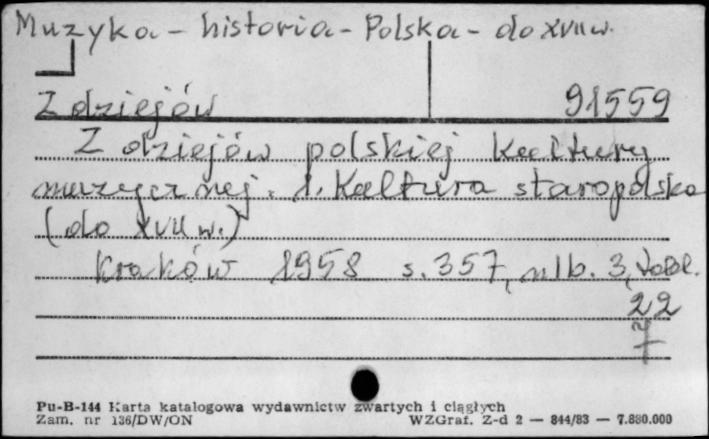 Muzyka - historia - Polska - do XVII w.
Z dziejów 91559
Z dziejów polskiej kultury
muzycznej. 1. Kultura staropolska
(do XVII w.)
Kraków 1958 s. 357, nlb. 3, tabl.
22
7
Pu-B-144 Karta katalogowa wydawnictw zwartych i ciągłych
Zam. nr 136/DW/ON WZGraf. Z-d 2 — 844/83 — 7.880.000